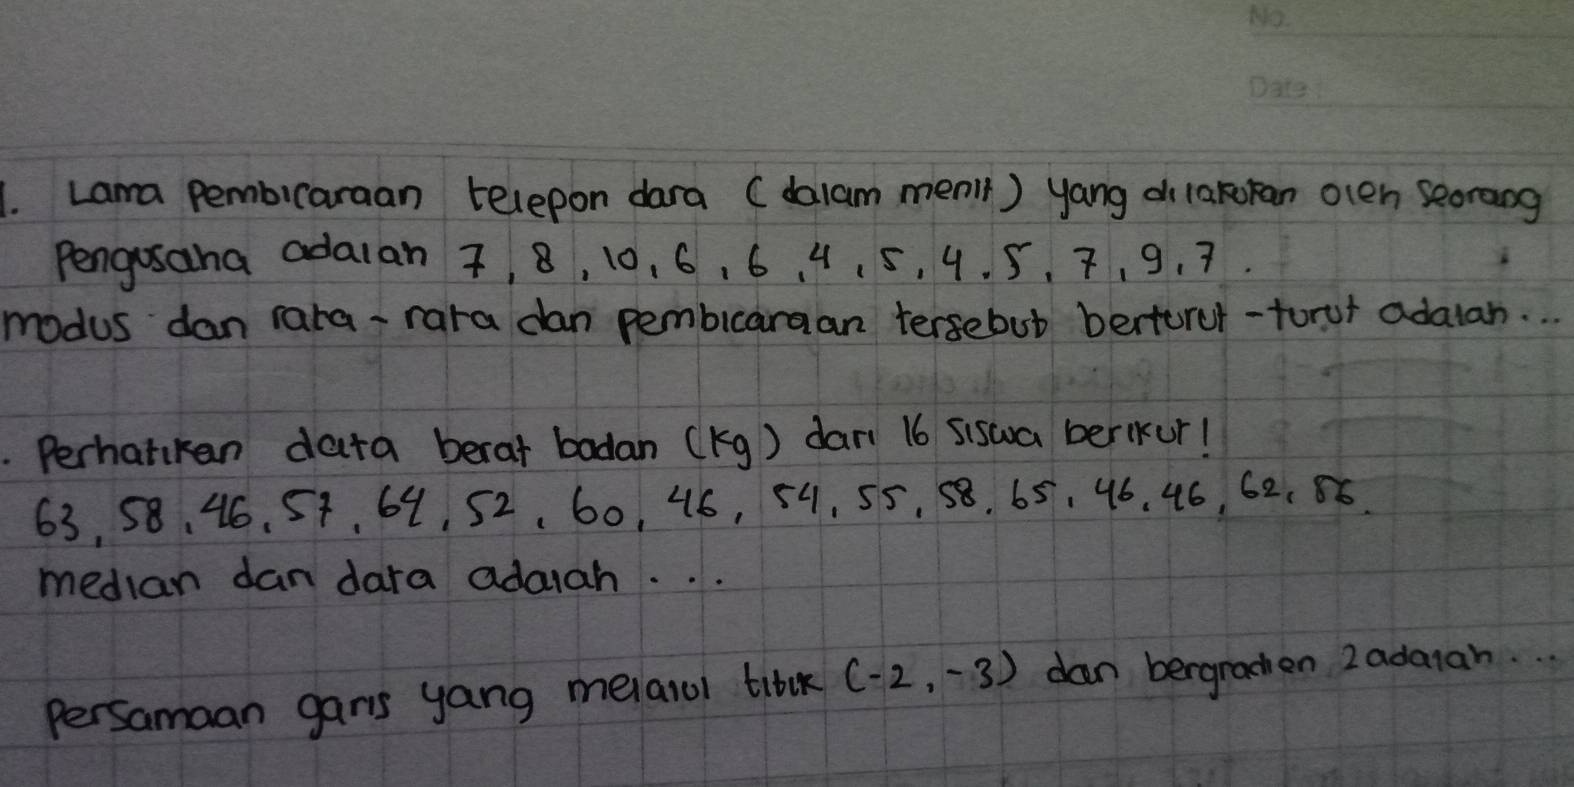 No.
Date:
1. Lama Pembicaraan telepon dara (dalam menit) yang dilakukan oleh seorang
Pengusaha adalah 7, 8, 10, 6, 6, 4, 5, 4, 5, 7, 9, 7.
modus dan rata-rata dan pembicaraan tersebut berturut-turut adalah...
. Perhatikan data berat badan (kg) dari 16 siswa berikut!
63, 58, 46, 57, 64, 52, 60, 46, 54, 55, 58, 65, 46, 46, 62, 56.
median dan data adalah ...
Persamaan garis yang melalui titik (-2, -3) dan bergradien 2 adalah...